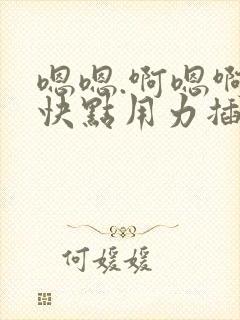 嗯嗯.啊嗯啊
快點用力插
何媛媛